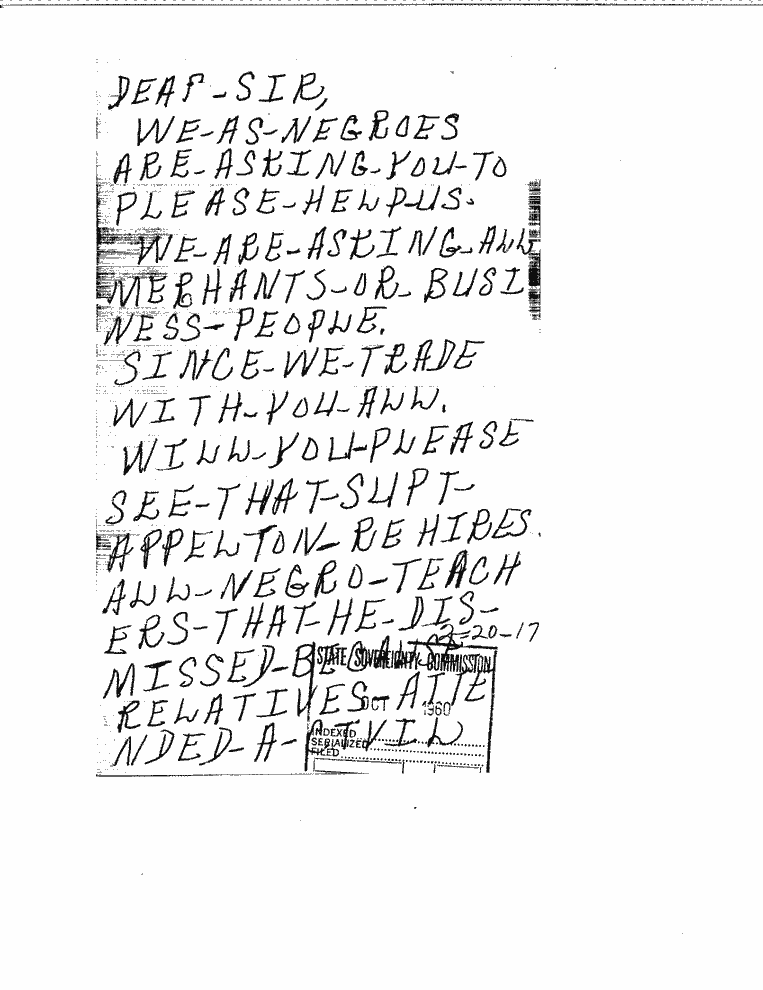 DEAR-SIR,
WE-AS-NEGROES
ARE-ASKING-YOU-TO
PLEASE-HELP-US.
WE-ARE-ASKING-ALL
MERCHANTS-OR-BUSI
NESS-PEOPLE.
SINCE-WE-TRADE
WITH-YOU-ALL.
WILL-YOU-PLEASE
SEE-THAT-SUPT-
APPELTON-REHIRES.
ALL-NEGRO-TEACH
ERS-THAT-HE-DIS-
2-20-17
MISSED-BECAUSE
STATE SOVEREIGNTY COMMISSION
RELATIVES-ATTE
OCT 1960
NDED-A-CIVIL
INDEXED
SERIALIZED
FILED